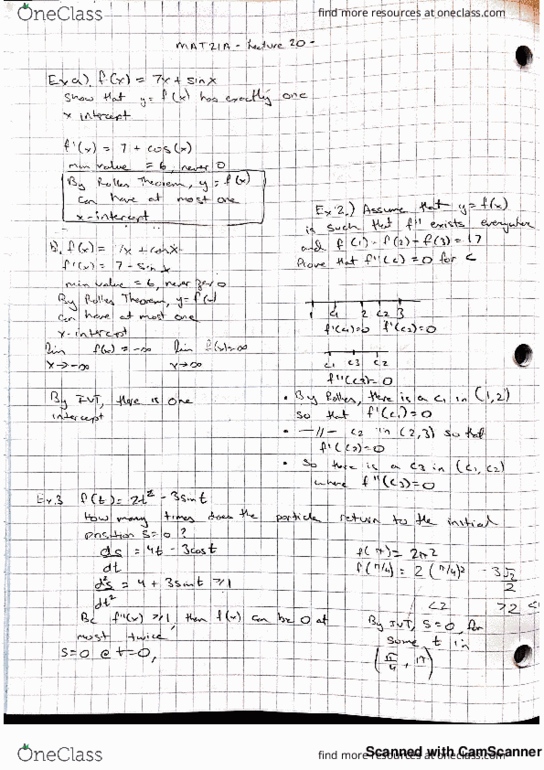 OneClass
find more resources at oneclass.com
MAT21A - Lecture 20 -
Ex a). f(x) = 7x + sinx
Show that y = f(x) has exactly one
x intercept
f'(x) = 7 + cos(x)
min value = 6, never 0
By Rolles Theorem, y = f(x)
can have at most one
x-intercept
b. f(x) = 7x + cosx
f'(x) = 7 - sinx
min value = 6, never zero
By Rolles Theorem, y = f(x)
can have at most one
x-intercept
lim f(x) = -∞ lim f(x) = ∞
x→-∞ x→∞
By IVT, there is one
intercept
Ex 2.) Assume that y = f(x)
is such that f'' exists everywhere
and f(1) = f(2) = f(3) = 17
Prove that f''(c) = 0 for c
1 c1 2 c2 3
f'(c1)=0 f'(c2)=0
c1 c3 c2
f''(c3)=0
• By Rolles, there is a c1 in (1,2)
so that f'(c1) = 0
• —//— c2 in (2,3) so that
f'(c2) = 0
• So there is a c3 in (c1, c2)
where f''(c3) = 0
Ex.3 f(t) = 2t² - 3sint
How many times does the particle return to the initial
position s = 0?
ds = 4t - 3cost
dt
d²s = 4 + 3sint ≥ 1
dt²
Bc f''(x) ≥ 1, then f(x) can be 0 at
most twice
s=0 @ t=0,
f(π) = 2π²
f(π/4) = 2(π/4)² - 3√2
2
<2 >2
By IVT, s = 0, for
some t in
(π/4, π)
OneClass
find more resources at oneclass.com
Scanned with CamScanner